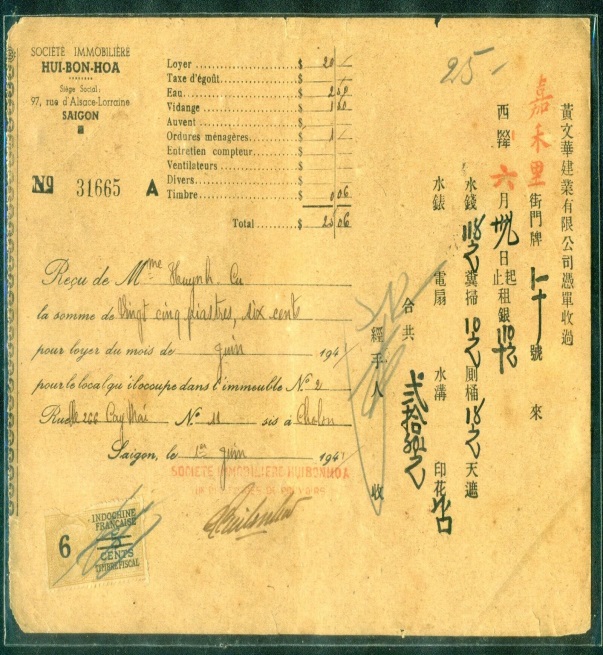 SOCIÉTÉ IMMOBILIÈRE
HUI-BON-HOA
Siège Social:
97, rue d'Alsace-Lorraine
SAIGON
Nº 31665 A
Loyer $ 20 /
Taxe d'égoût $
Eau $
Vidange $
Auvent $
Ordures ménagères $ 1 /
Entretien compteur $
Ventilateurs $
Divers $
Timbre $ 0 06
Total $ 25 06
25 -
Reçu de Mme Huynh Cu
la somme de Vingt cinq piastres, six cents
pour loyer du mois de juin 194
pour le local qu'il occupe dans l'immeuble Nº 2
Ruelle 206 Cay Mai N. 11 sis à Cholon
Saigon, le 1er juin 194
SOCIETE IMMOBILIERE HUIBONHOA
6
INDOCHINE
FRANÇAISE
CENTS
TIMBRE FISCAL
黃文華建業有限公司憑單收過
嘉禾里街門牌 號 來
西曆 六月 日起止租銀
水錢 糞掃 厠桶 天遮
水錶 電扇 水溝 印花
合共
經手人 收